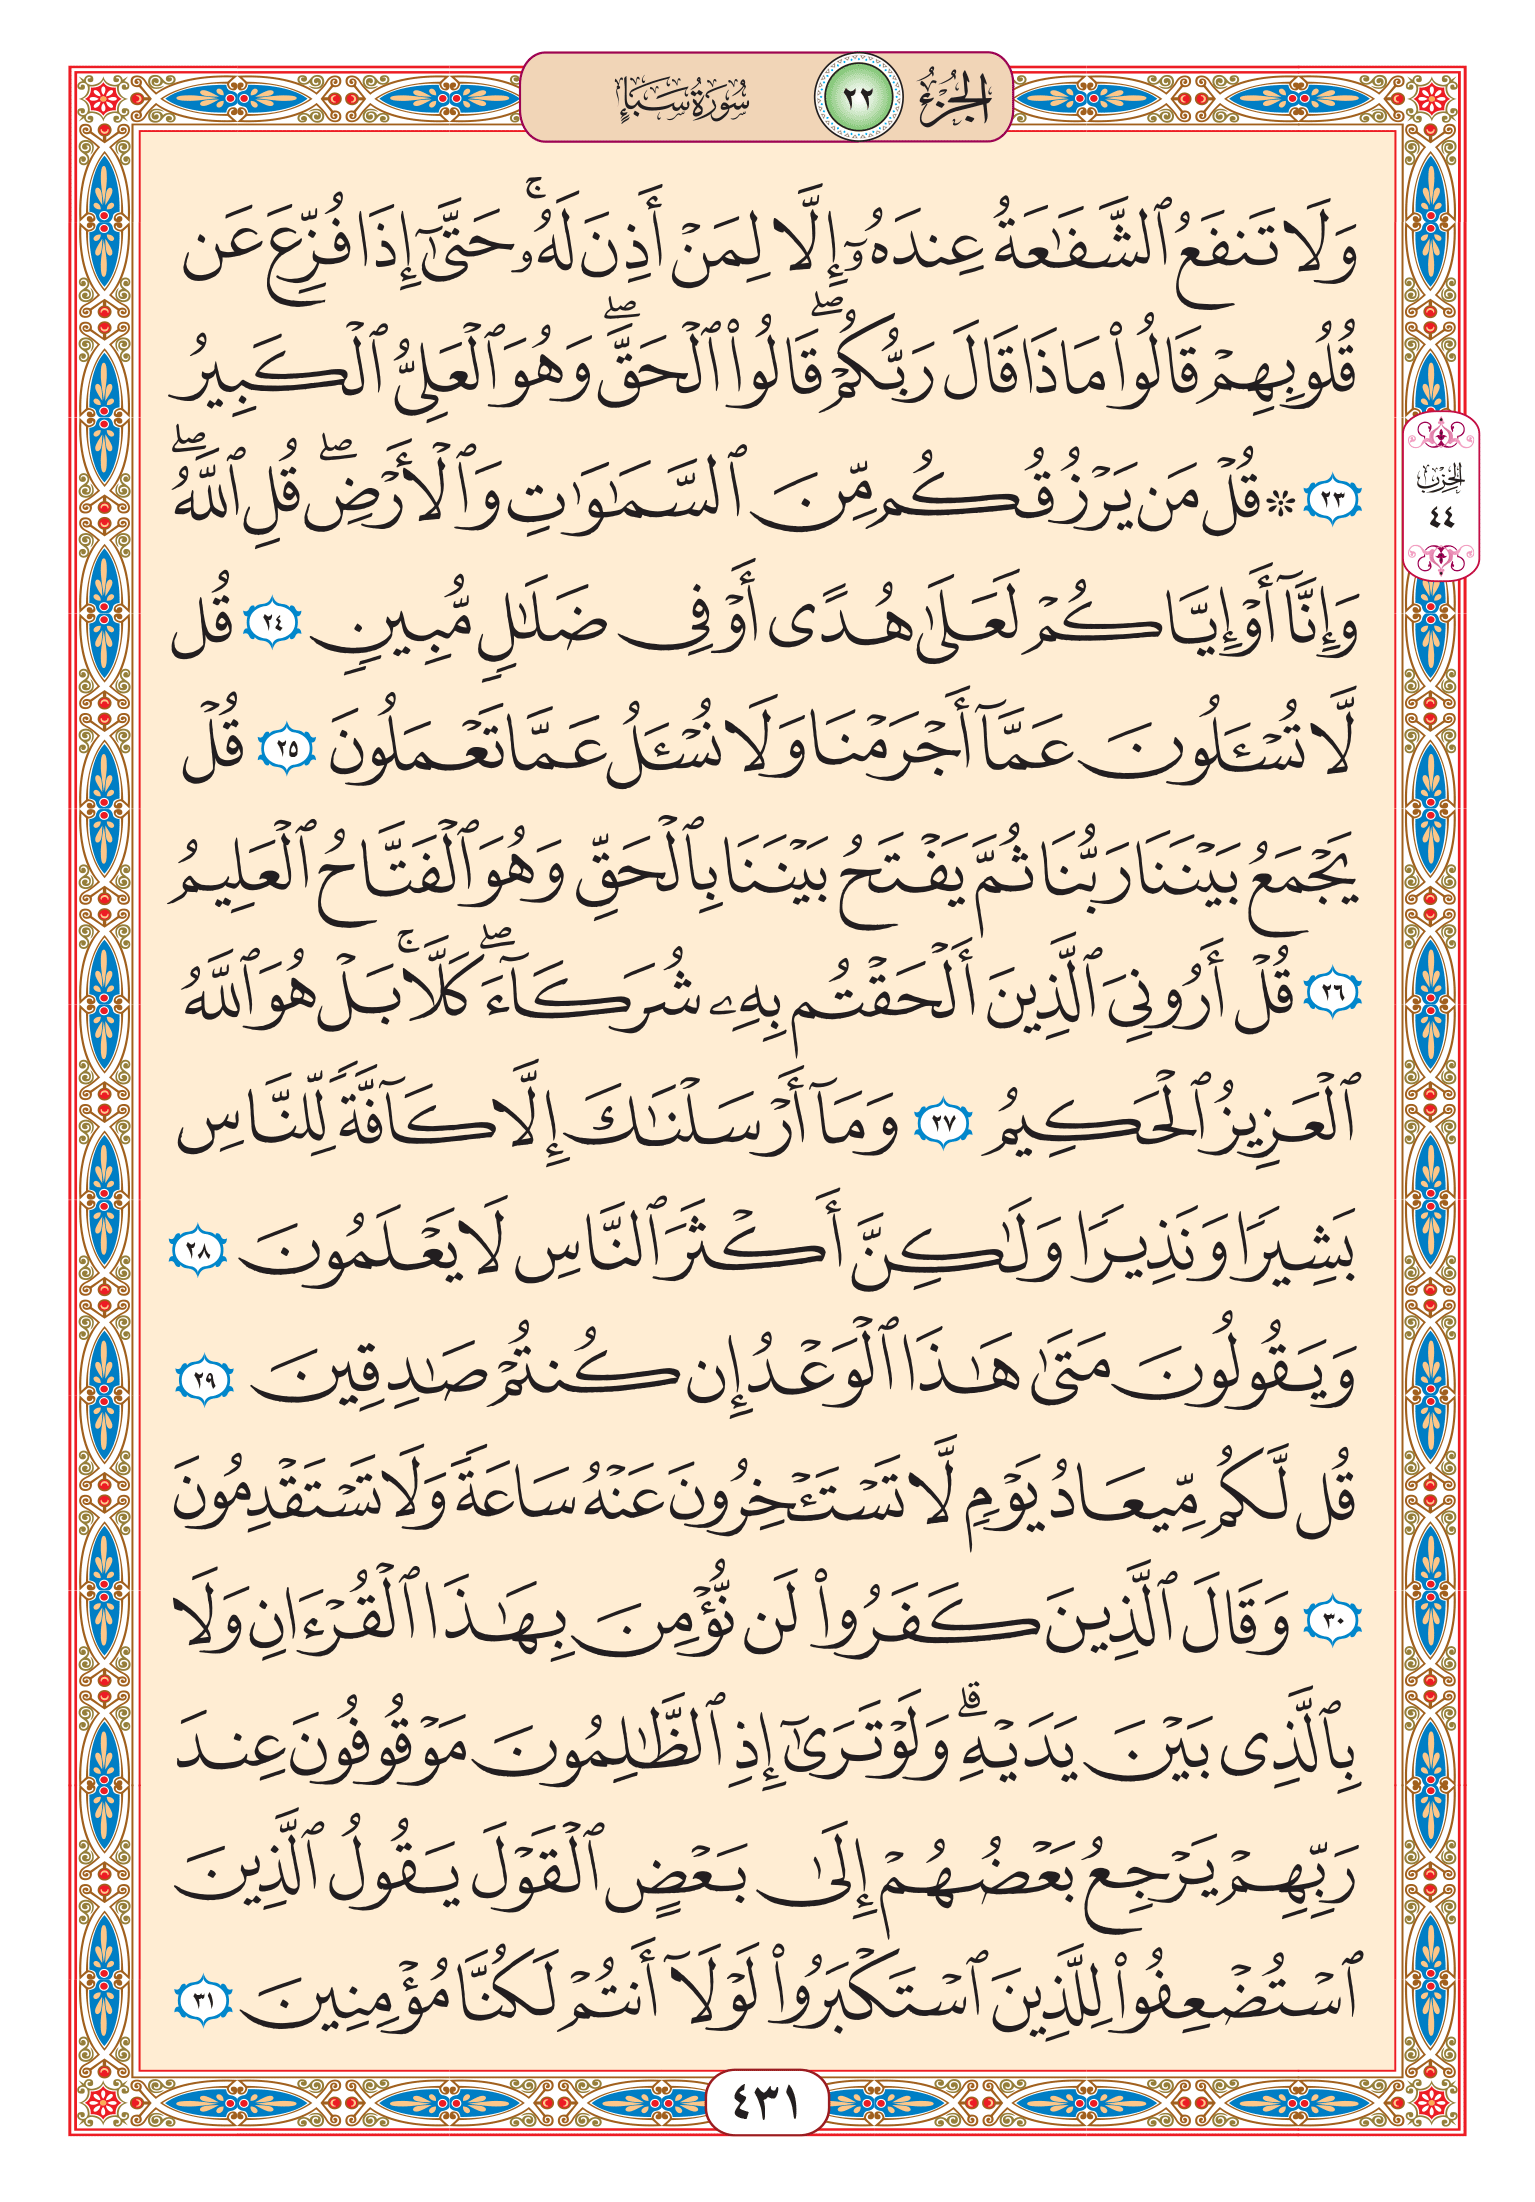 الجزء ٢٢ سورة سبإ
وَلَا تَنفَعُ ٱلشَّفَٰعَةُ عِندَهُۥٓ إِلَّا لِمَنْ أَذِنَ لَهُۥۚ حَتَّىٰٓ إِذَا فُزِّعَ عَن
قُلُوبِهِمْ قَالُوا۟ مَاذَا قَالَ رَبُّكُمْۖ قَالُوا۟ ٱلْحَقَّۖ وَهُوَ ٱلْعَلِىُّ ٱلْكَبِيرُ
الحزب ٤٤
٢٣ ۞ قُلْ مَن يَرْزُقُكُم مِّنَ ٱلسَّمَٰوَٰتِ وَٱلْأَرْضِۖ قُلِ ٱللَّهُۖ
وَإِنَّآ أَوْ إِيَّاكُمْ لَعَلَىٰ هُدًى أَوْ فِى ضَلَٰلٍ مُّبِينٍ ٢٤ قُل
لَّا تُسْـَٔلُونَ عَمَّآ أَجْرَمْنَا وَلَا نُسْـَٔلُ عَمَّا تَعْمَلُونَ ٢٥ قُلْ
يَجْمَعُ بَيْنَنَا رَبُّنَا ثُمَّ يَفْتَحُ بَيْنَنَا بِٱلْحَقِّ وَهُوَ ٱلْفَتَّاحُ ٱلْعَلِيمُ
٢٦ قُلْ أَرُونِىَ ٱلَّذِينَ أَلْحَقْتُم بِهِۦ شُرَكَآءَۖ كَلَّاۚ بَلْ هُوَ ٱللَّهُ
ٱلْعَزِيزُ ٱلْحَكِيمُ ٢٧ وَمَآ أَرْسَلْنَٰكَ إِلَّا كَآفَّةً لِّلنَّاسِ
بَشِيرًا وَنَذِيرًا وَلَٰكِنَّ أَكْثَرَ ٱلنَّاسِ لَا يَعْلَمُونَ ٢٨
وَيَقُولُونَ مَتَىٰ هَٰذَا ٱلْوَعْدُ إِن كُنتُمْ صَٰدِقِينَ ٢٩
قُل لَّكُم مِّيعَادُ يَوْمٍ لَّا تَسْتَـْٔخِرُونَ عَنْهُ سَاعَةً وَلَا تَسْتَقْدِمُونَ
٣٠ وَقَالَ ٱلَّذِينَ كَفَرُوا۟ لَن نُّؤْمِنَ بِهَٰذَا ٱلْقُرْءَانِ وَلَا
بِٱلَّذِى بَيْنَ يَدَيْهِۗ وَلَوْ تَرَىٰٓ إِذِ ٱلظَّٰلِمُونَ مَوْقُوفُونَ عِندَ
رَبِّهِمْ يَرْجِعُ بَعْضُهُمْ إِلَىٰ بَعْضٍ ٱلْقَوْلَ يَقُولُ ٱلَّذِينَ
ٱسْتُضْعِفُوا۟ لِلَّذِينَ ٱسْتَكْبَرُوا۟ لَوْلَآ أَنتُمْ لَكُنَّا مُؤْمِنِينَ ٣١
٤٣١